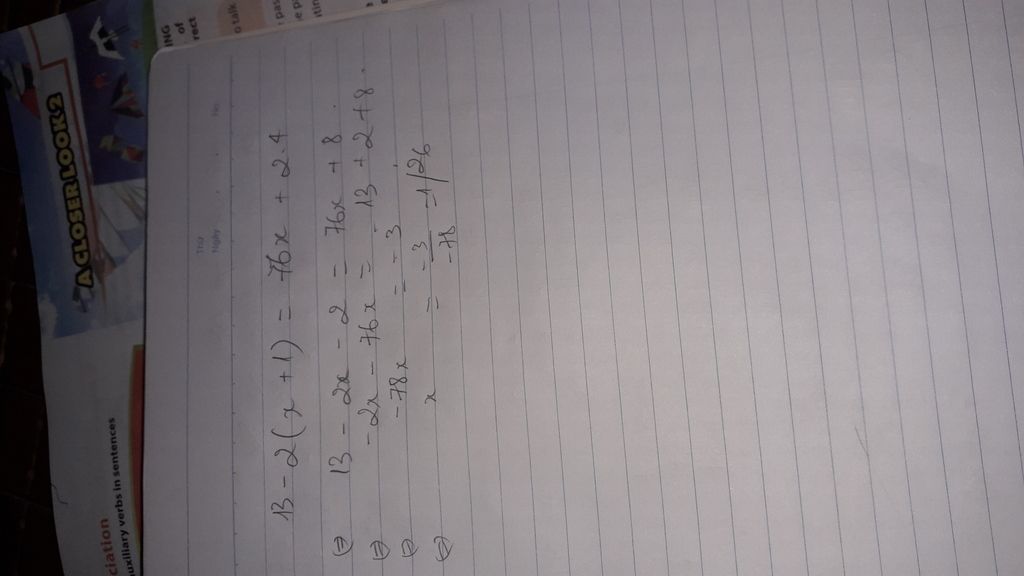 A CLOSER LOOK 2
ciation
uxiliary verbs in sentences
NG
of
rect
o talk
pas
Thứ
Ngày
No.
13 - 2(x + 1) = 76x + 2.4
(=) 13 - 2x - 2 = 76x + 8.
(=) -2x - 76x = 13 + 2 + 8.
(=) -78x = -3
(=) x = -3/-78 = 1/26